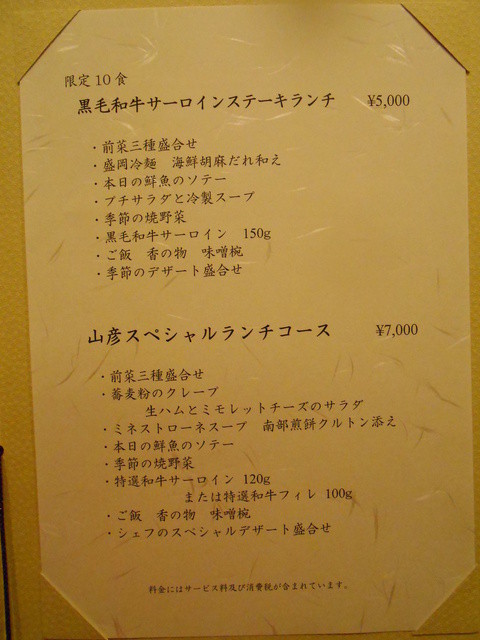 限定10食
黒毛和牛サーロインステーキランチ ¥5,000
・前菜三種盛合せ
・盛岡冷麺 海鮮胡麻だれ和え
・本日の鮮魚のソテー
・プチサラダと冷製スープ
・季節の焼野菜
・黒毛和牛サーロイン 150g
・ご飯 香の物 味噌椀
・季節のデザート盛合せ
山彦スペシャルランチコース ¥7,000
・前菜三種盛合せ
・蕎麦粉のクレープ
生ハムとミモレットチーズのサラダ
・ミネストローネスープ 南部煎餅クルトン添え
・本日の鮮魚のソテー
・季節の焼野菜
・特選和牛サーロイン 120g
または特選和牛フィレ 100g
・ご飯 香の物 味噌椀
・シェフのスペシャルデザート盛合せ
料金にはサービス料及び消費税が含まれています。